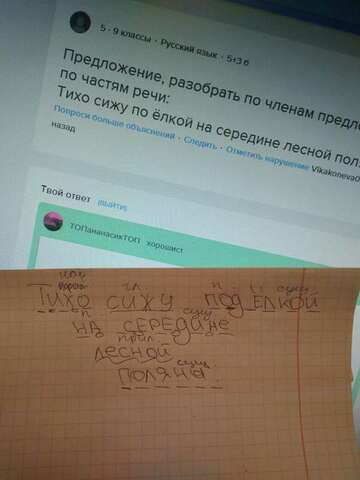 5 - 9 классы · Русский язык · 5+3 б
Предложение, разобрать по членам предло
по частям речи:
Тихо сижу по ёлкой на середине лесной пол
Попроси больше объяснений · Следить · Отметить нарушение Vikakoneva0
назад
Твой ответ (ВЫЙТИ)
ТОПананасикТОП хорошист
гл. п сущ
Тихо сижу под ёлкой
п сущ
на середине
прил
лесной
сущ
поляны